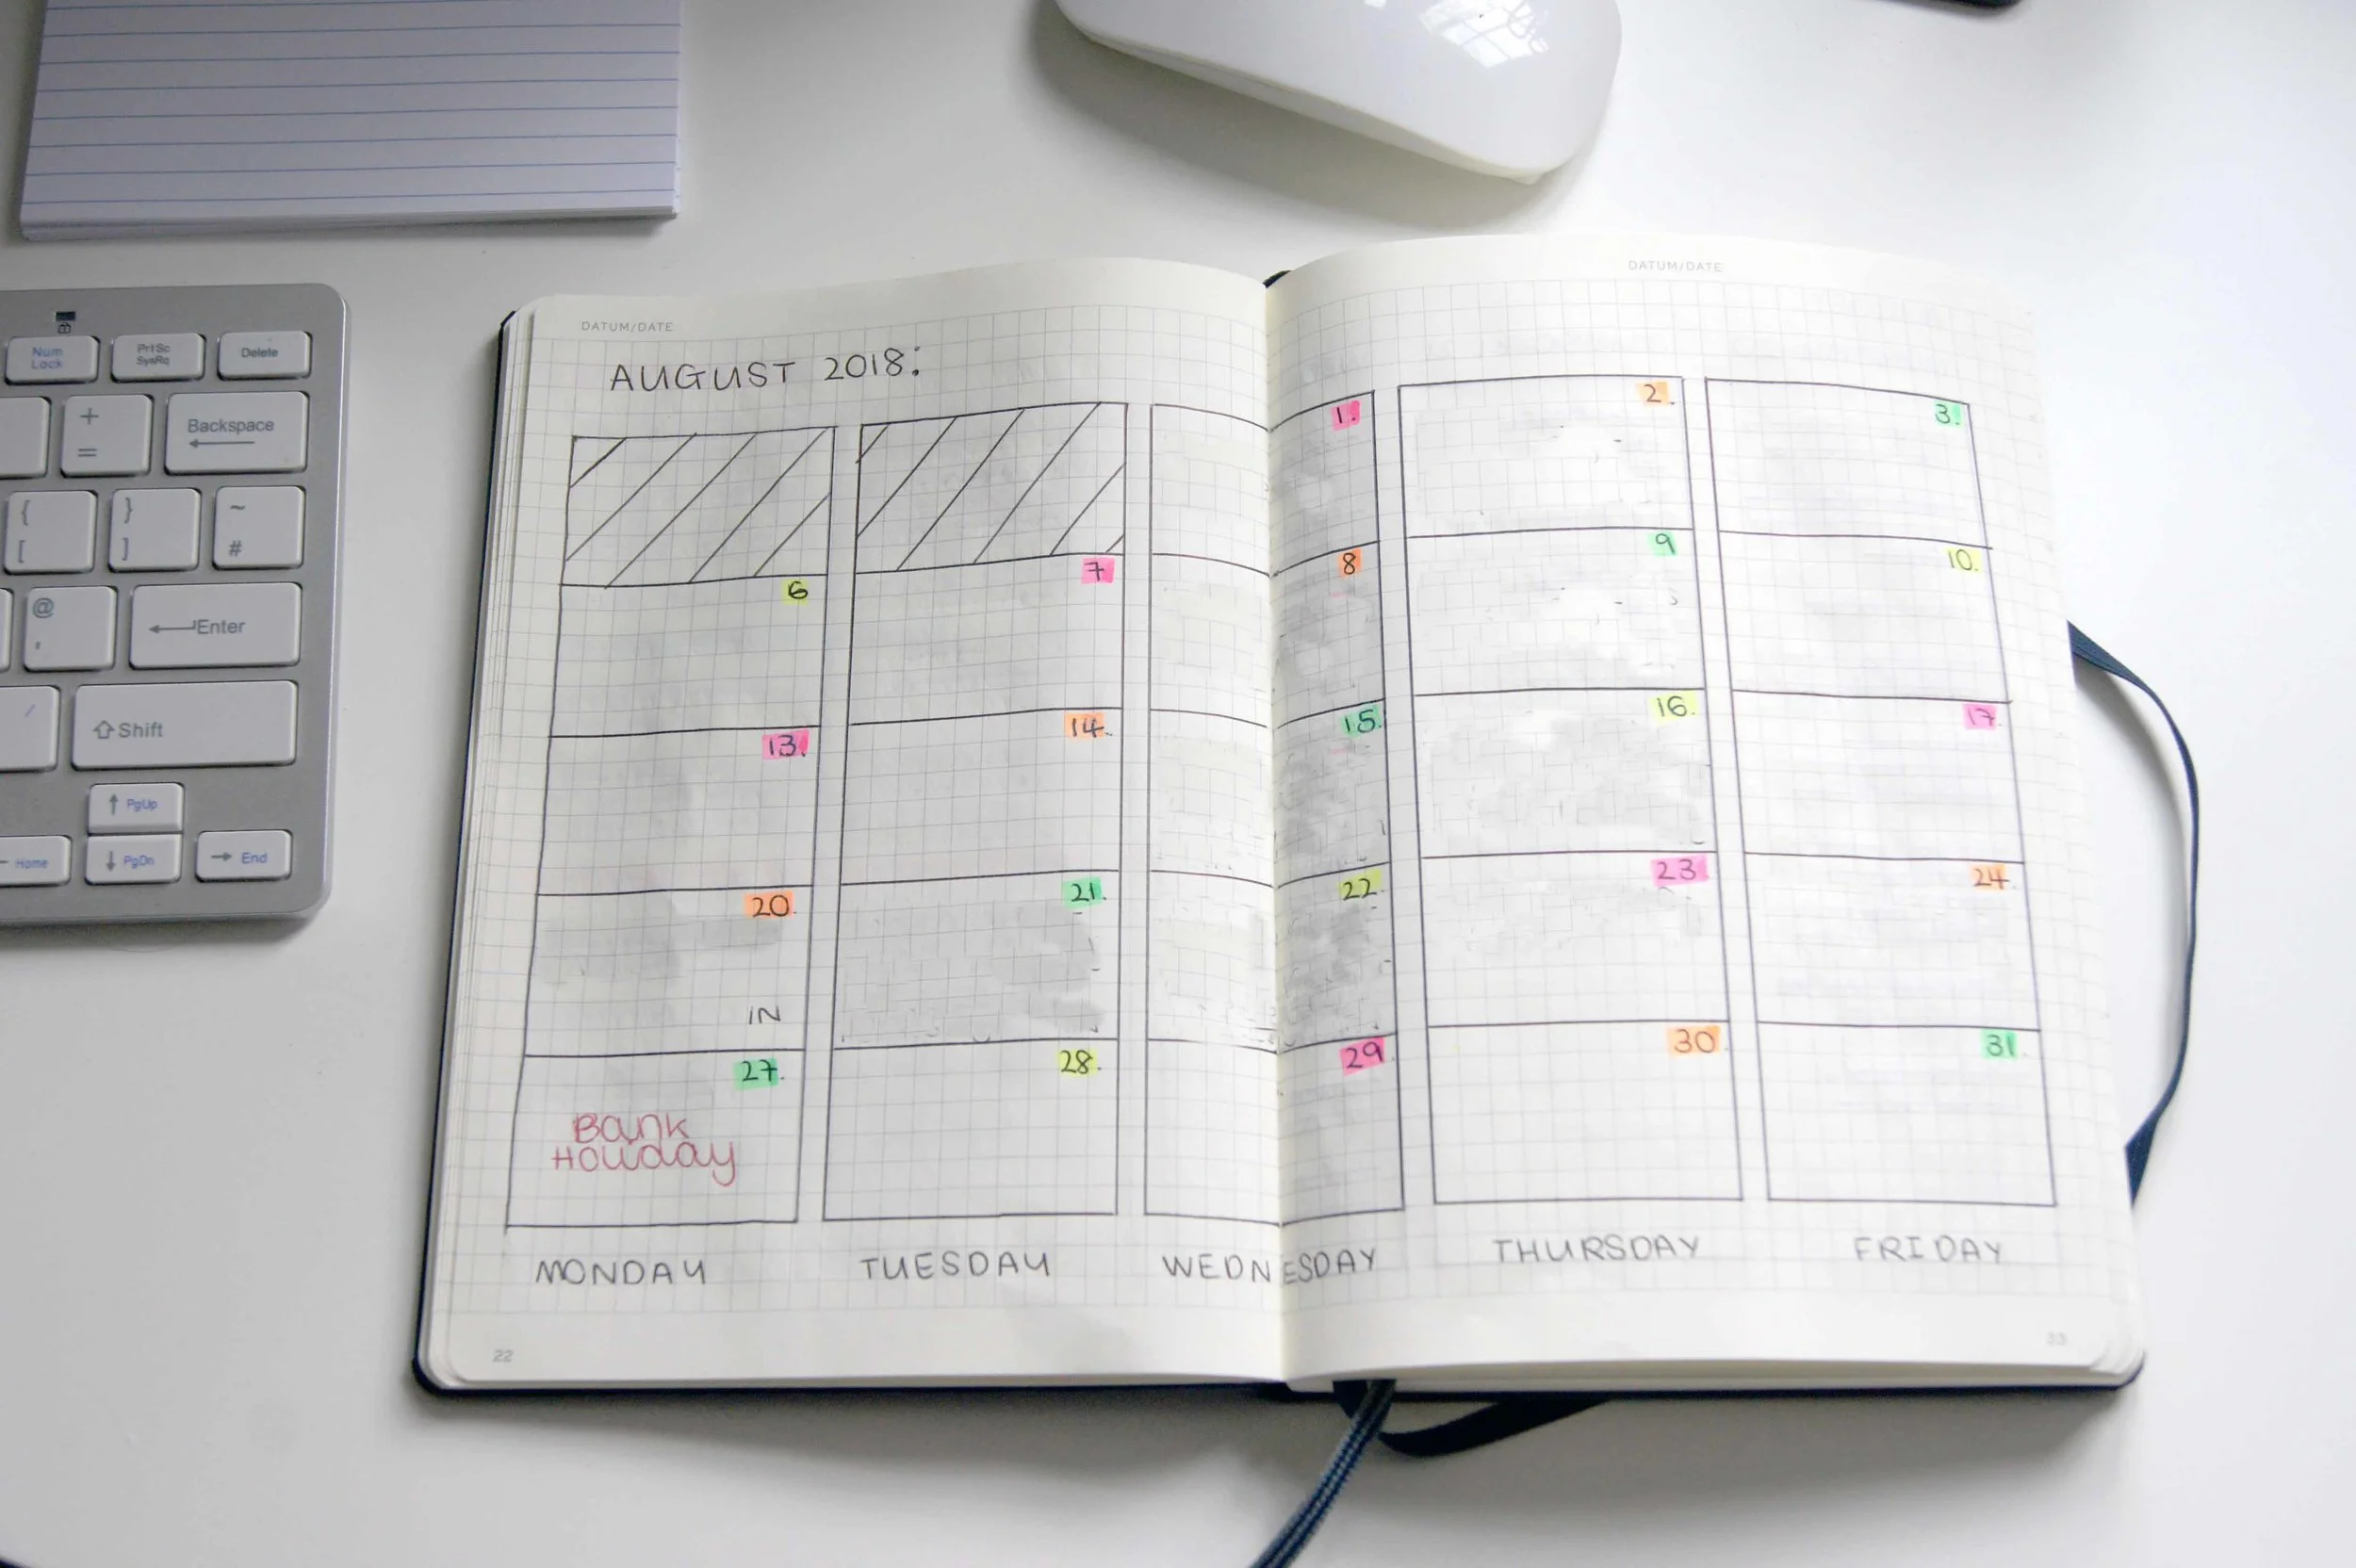 Num
Lock
PrtSc
SysRq
Delete
+
=
Backspace
{
[
}
]
~
#
@
'
Enter
/
Shift
PgUp
Home
PgDn
End
DATUM/DATE
DATUM/DATE
AUGUST 2018:
1. 2. 3.
6 7 8 9 10.
13. 14. 15. 16. 17.
20. 21. 22. 23 24.
IN
27. 28. 29. 30. 31.
Bank
Holiday
MONDAY TUESDAY WEDNESDAY THURSDAY FRIDAY
22
33